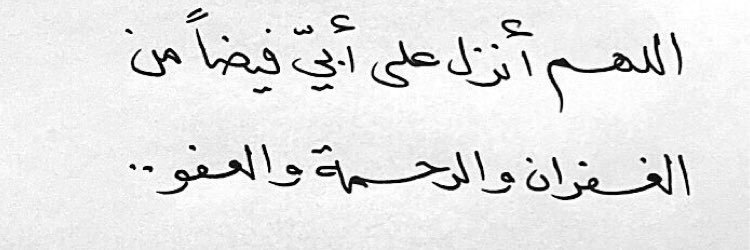 اللهم أنزل على أبيّ فيضاً من
الغفران والرحمة والعفو..